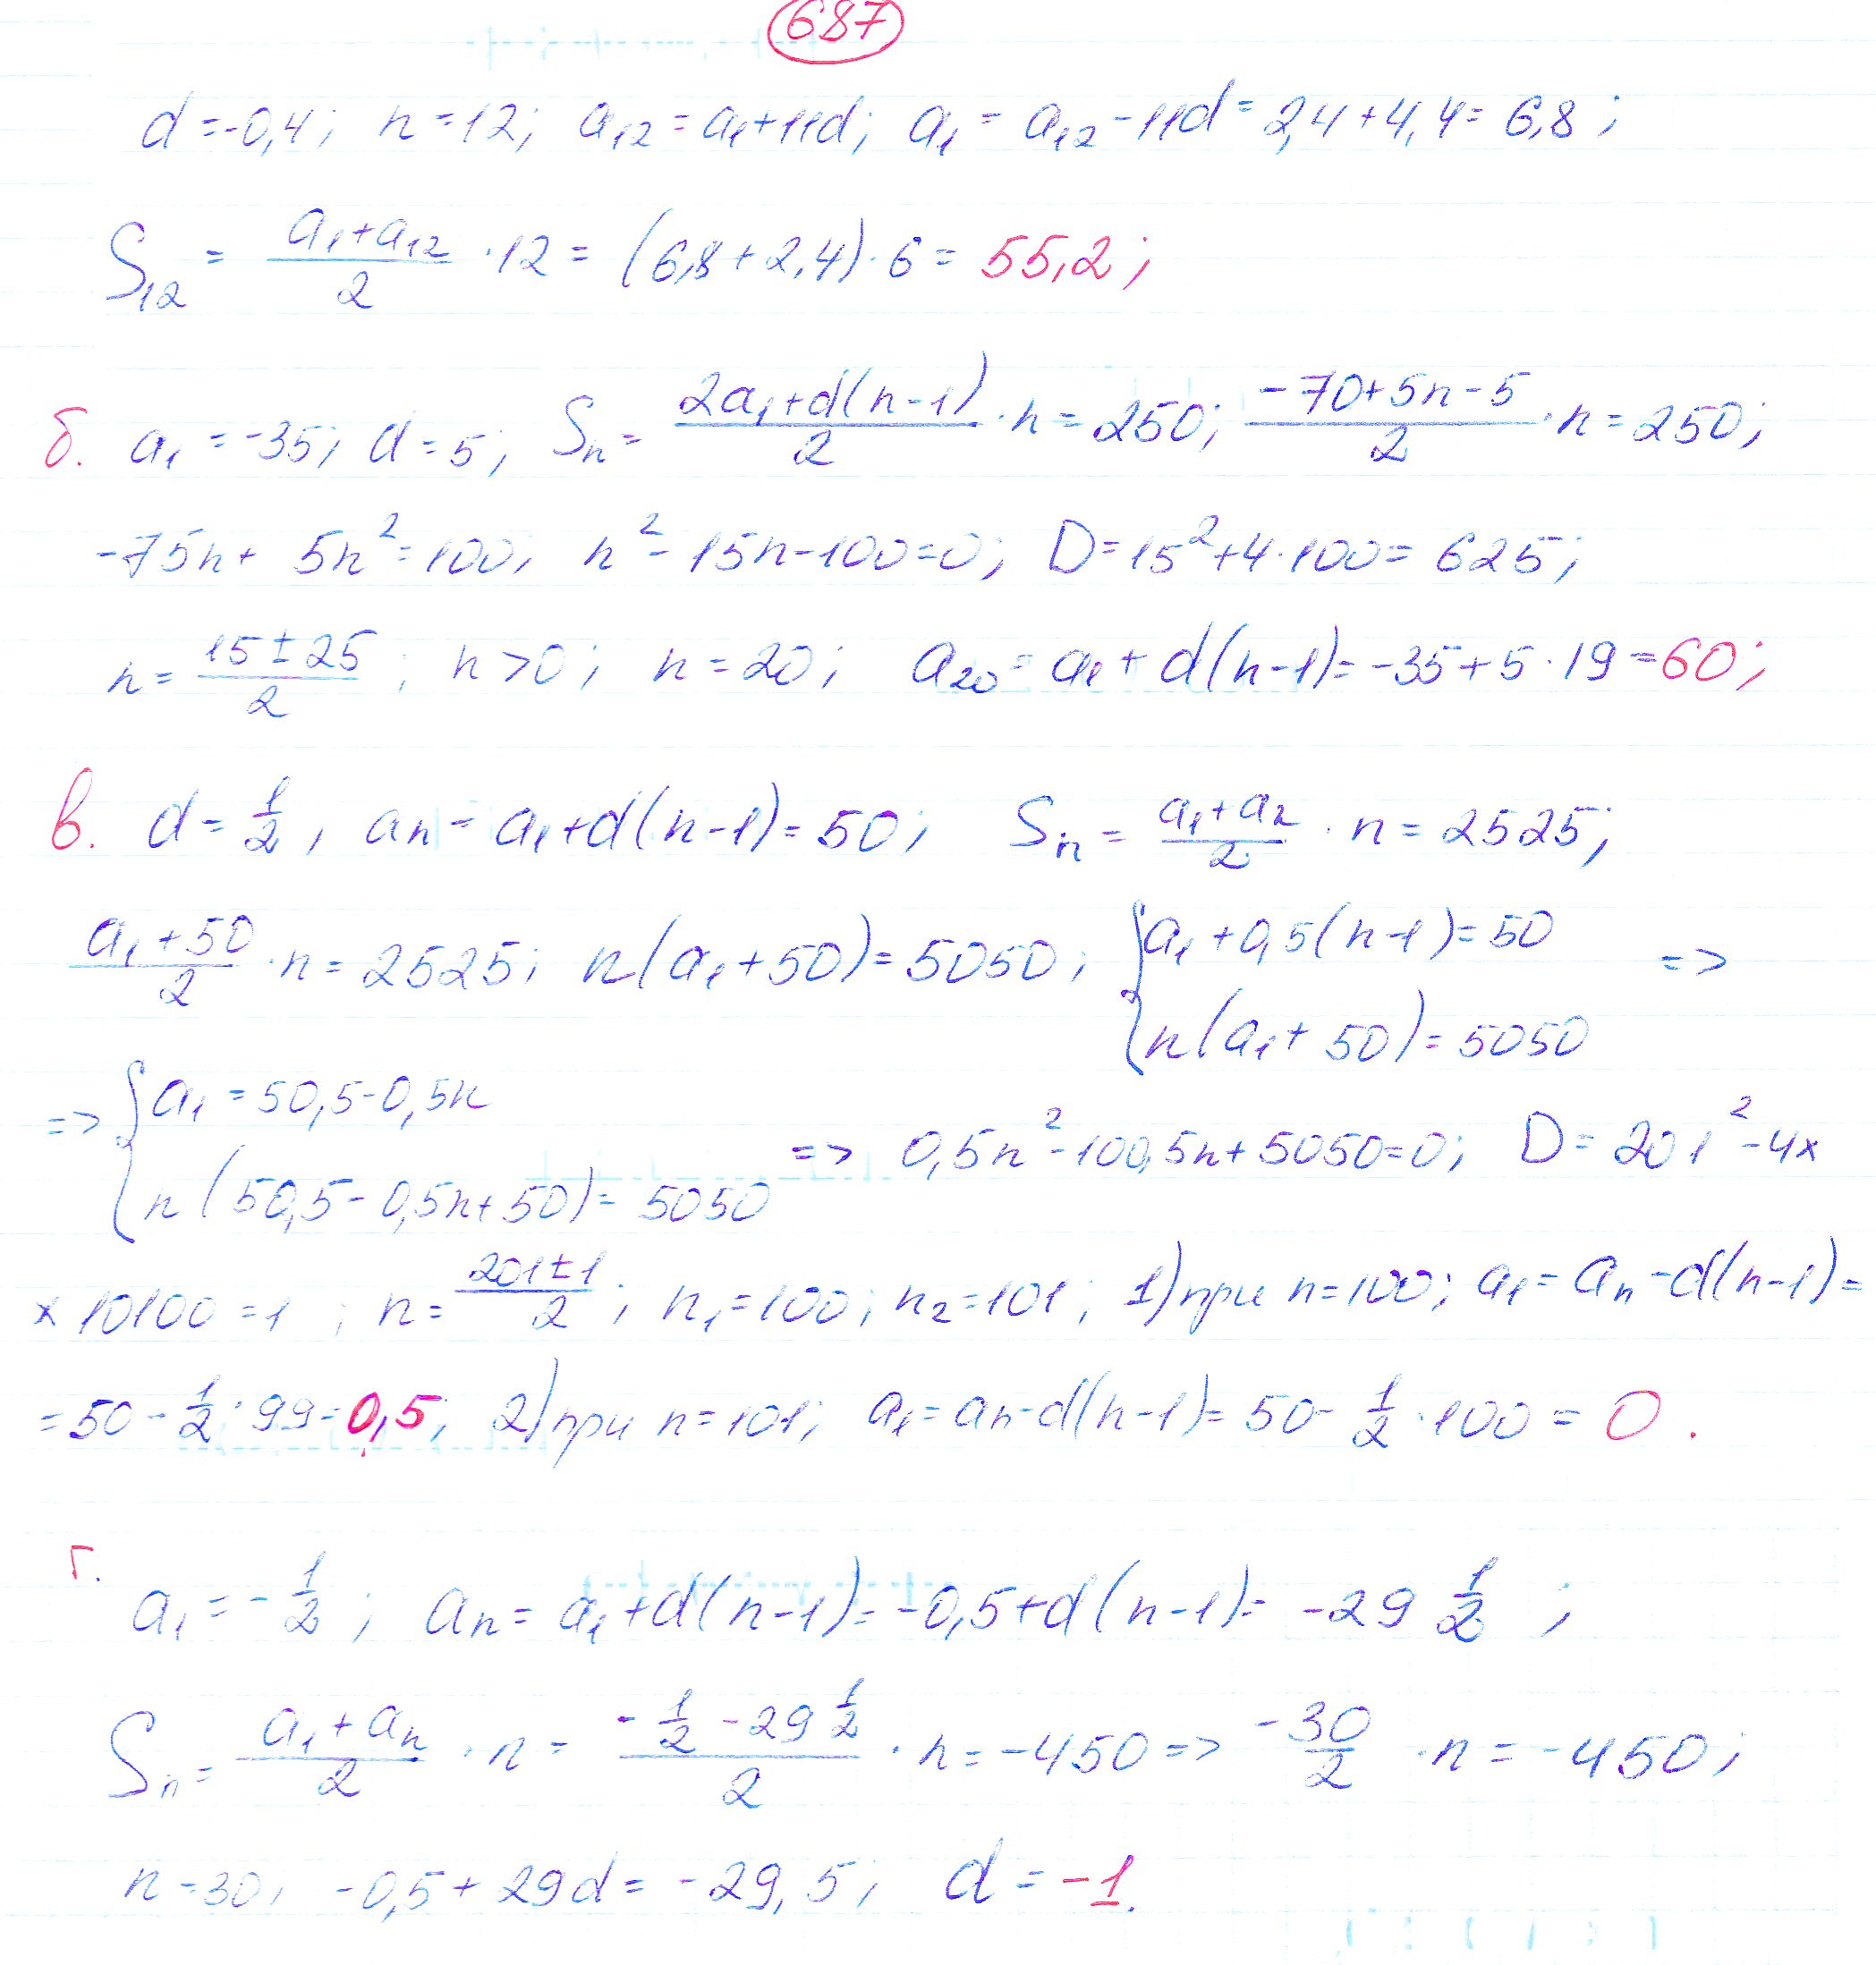 687
d=-0,4; n=12; a₁₂=a₁+11d; a₁=a₁₂-11d=2,4+4,4=6,8;
S₁₂ = (a₁+a₁₂)/2 · 12 = (6,8+2,4)·6 = 55,2;
б. a₁=-35; d=5; Sₙ= (2a₁+d(n-1))/2 · n=250; (-70+5n-5)/2 · n=250;
-75n+5n²=100; n²-15n-100=0; D=15²+4·100=625;
n= (15±25)/2; n>0; n=20; a₂₀=a₁+d(n-1)=-35+5·19=60;
в. d=1/2, an=a₁+d(n-1)=50; Sₙ= (a₁+a₂)/2 · n=2525;
(a₁+50)/2 · n=2525; n(a₁+50)=5050; { a₁+0,5(n-1)=50 =>
n(a₁+50)=5050
=> { a₁=50,5-0,5n
n(50,5-0,5n+50)=5050 => 0,5n²-100,5n+5050=0; D=201²-4×
×10100=1; n= (201±1)/2; n₁=100; n₂=101; 1) при n=100; a₁=aₙ-d(n-1)=
=50-1/2·99=0,5; 2) при n=101; a₁=an-d(n-1)=50-1/2·100=0.
г. a₁=-1/2; an=a₁+d(n-1)=-0,5+d(n-1)=-29 1/2;
Sₙ= (a₁+aₙ)/2 · n= (-1/2-29 1/2)/2 · n=-450=> -30/2 · n=-450;
n=30; -0,5+29d=-29,5; d=-1.